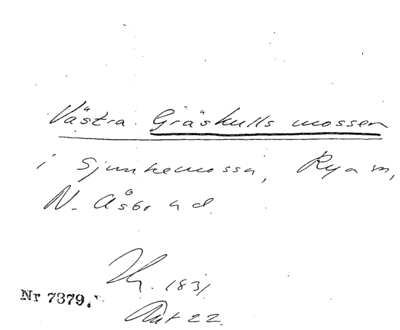 Västra Gräskulls mossen
i Sjunkemossa, Rya m,
N. Åsbo hd.
Nr 7379.
1831
Akt 22.